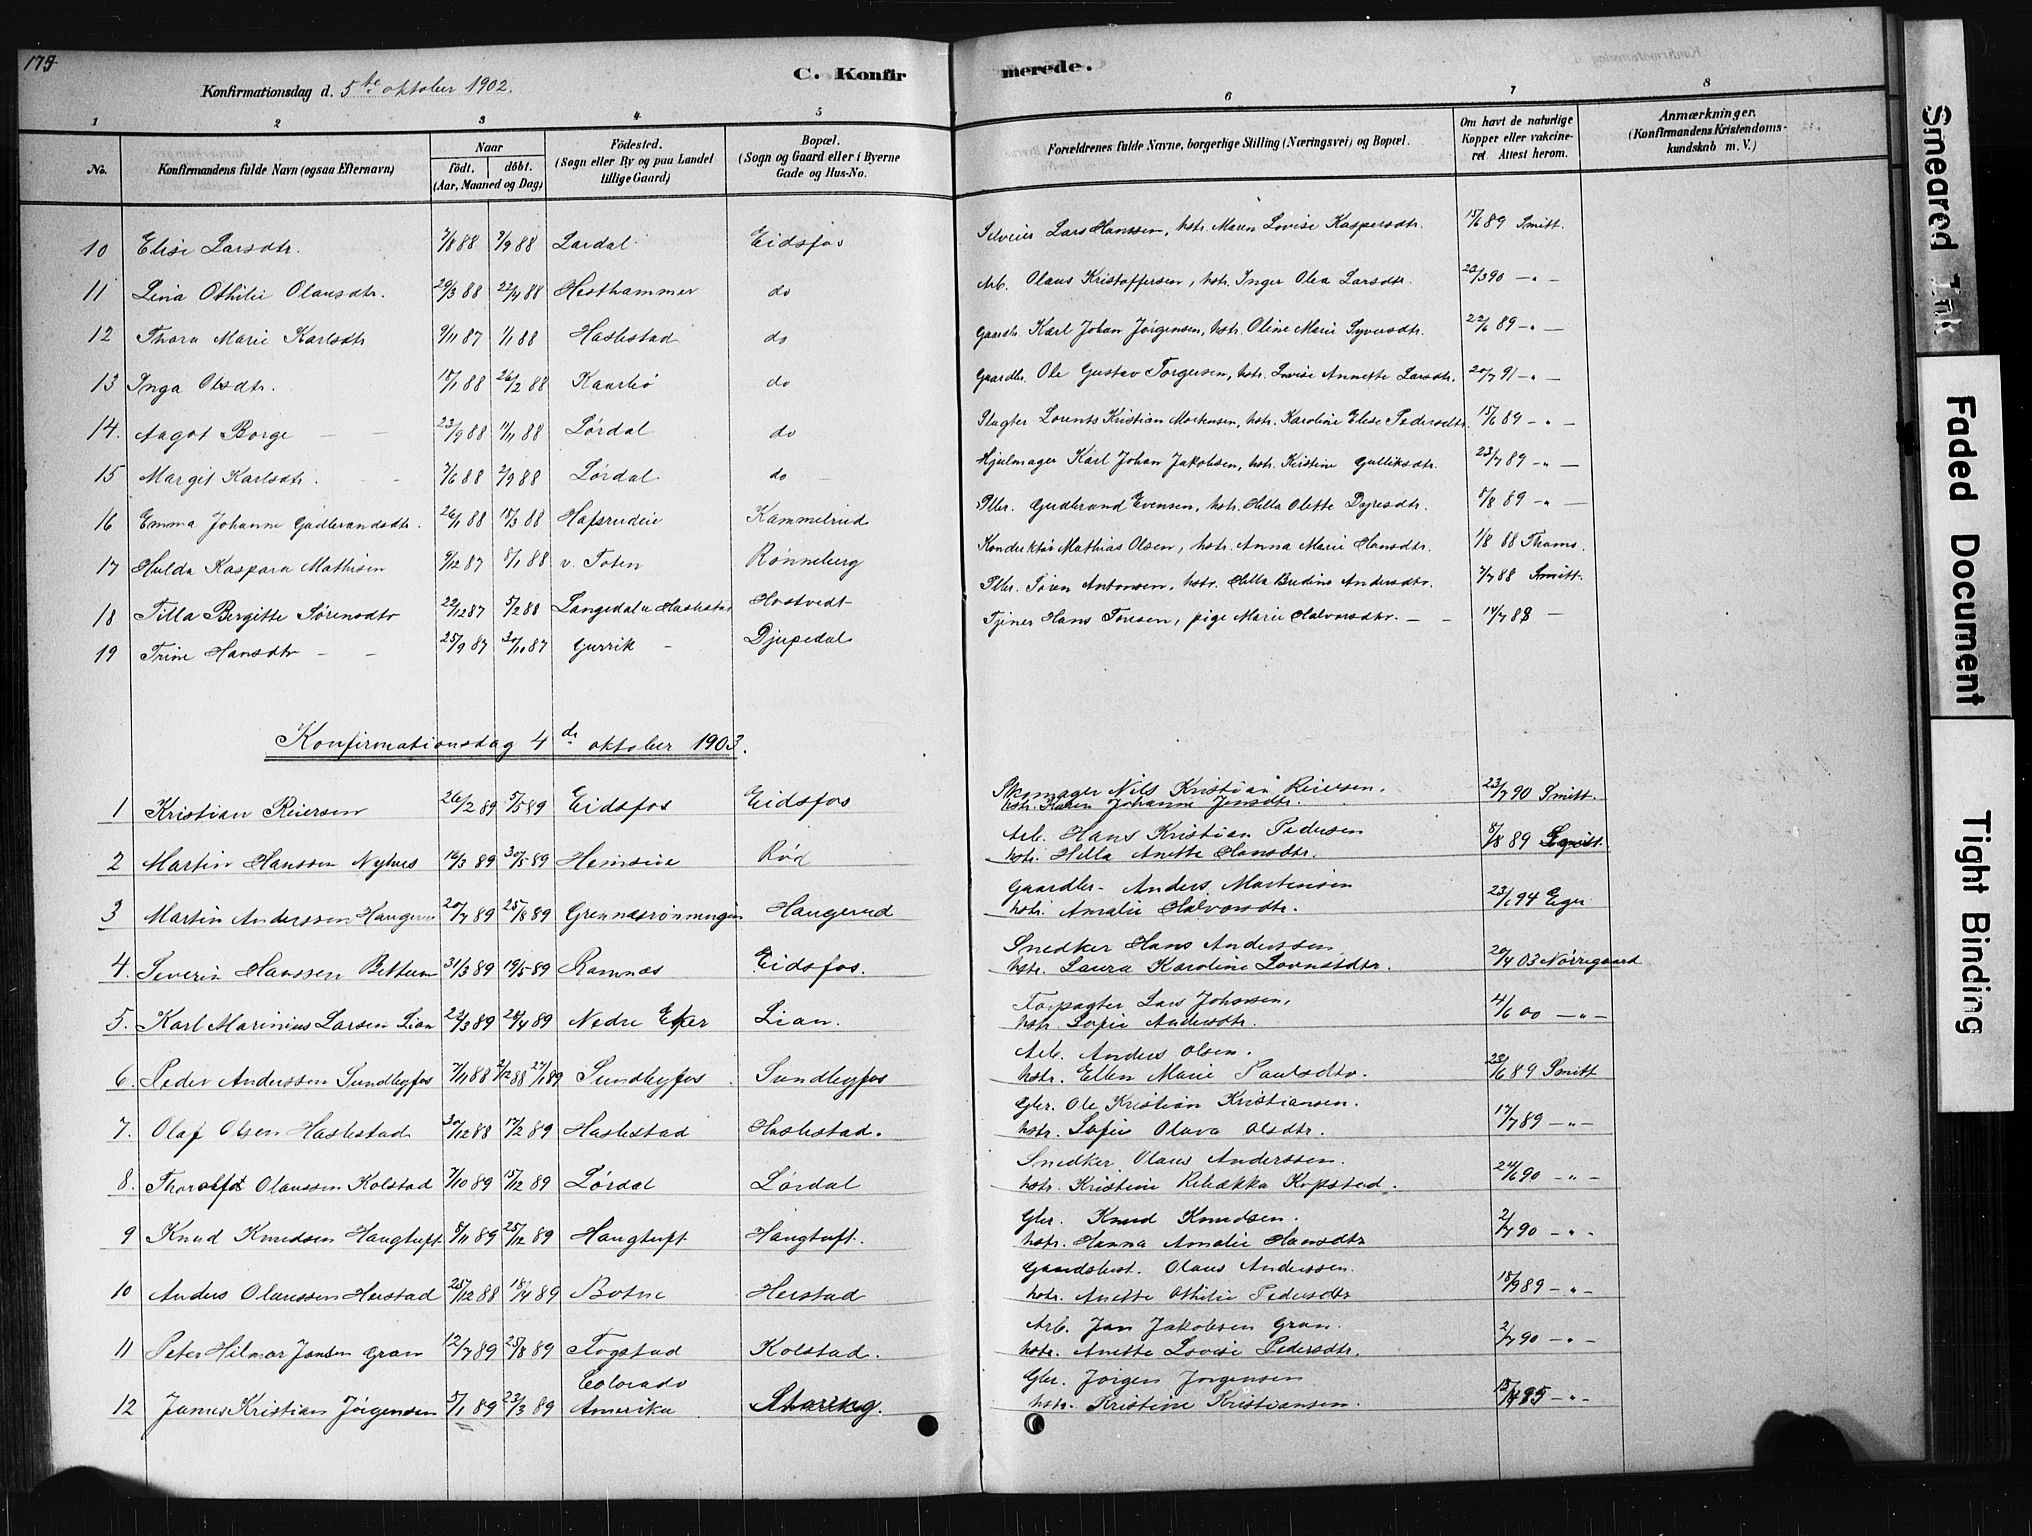 175
Konfirmationsdag d. 5te oktober 1902.
C. Konfirmerede.
1 2 3 4 5 6 7 8
No. Konfirmandens fulde Navn (ogsaa Efternavn) Naar födt. döbt. (Aar, Maaned og Dag) Födested. (Sogn eller By og paa Landet tillige Gaard) Bopæl. (Sogn og Gaard eller i Byerne Gade og Hus-No. Forældrenes fulde Navne, borgerlige Stilling (Næringsvei) og Bopæl. Om havt de naturlige Kopper eller vakcineret Attest herom. Anmærkninger. (Konfirmandens Kristendomskundskab m. V.)
10 Elise Larsdtr. 7/8 88 9/9 88 Lardal Eidsfos Lars Hanssen, hstr. Maren Lovise Kaspersdtr. 15/6 89 Smitt.
11 Lina Othilie Olausdtr. 29/3 88 22/4 88 Hesthammer do Arb. Olaus Kristoffersen, hstr. Inger Olea Larsdtr. 23/3 90 -"-
12 Thora Marie Karlsdtr 9/11 87 1/1 88 Haslestad do Gaardbr. Karl Johan Jørgensen, hstr. Oline Marie Syversdtr. 22/6 89 -"-
13 Inga Olsdtr. 18/1 88 26/2 88 Kaarbø do Gaardbr. Ole Gustav Torgersen, hstr. Lovise Annette Larsdtr. 20/7 91 -"-
14. Aagot Borge 23/9 88 11/11 88 Lørdal do Slagter Lorents Kristian Mortensen, hstr. Karoline Elise Pedersdtr. 15/6 89 -"-
15 Margit Karlsdtr. 7/6 88 2/9 88 Lørdal do Hjulmager Karl Johan Jakobsen, hstr. Kristine Gulliksdtr. 23/7 89 -"-
16 Emma Johanne Gudbrandsdtr. 26/1 88 18/3 88 Hafsrudeie Kammelrud Pller. Gudbrand Evensen, hstr. Hella Olette Dyresdtr. 8/8 89 -"-
17 Hulda Kaspara Mathisen 9/12 87 8/1 88 v. Toten Rønneberg Konduktør Mathias Olsen, hstr. Anna Marie Hansdtr. 1/8 88 Thams.
18 Tilla Bergitte Sørensdtr 22/12 87 5/2 88 Langedalen Haslestad Hostvedt Pller. Søren Antonsen, hstr. Hella Bredine Andersdtr. 7/7 88 Smitt.
19 Trine Hansdtr 25/9 87 30/10 87 Gurrik Djupedal Tjener Hans Toresen, pige Marie Halvorsdtr. 14/7 88
Konfirmationsdag 4de oktober 1903.
1 Kristian Reiersen 26/2 89 5/5 89 Eidsfos Eidsfos Skomager Nils Kristian Reiersen, hstr. Karen Johanne Jensdtr. 23/7 90 Smitt.
2 Martin Hanssen Nyhus 14/3 89 30/5 89 Hemseie Rød Arb. Hans Kristian Pedersen hstr. Hella Anette Hansdtr. 8/8 89 Smitt.
3 Martin Anderssen Haugerud 20/7 89 25/8 89 Grennesrønningen Haugerud Gaardbr. Anders Martinsen hstr. Amalie Halvorsdtr. 23/1 94 Eger
4. Severin Hanssen Bettum 31/3 89 19/5 89 Ramnæs Eidsfos. Snedker Hans Anderssen hstr. Laura Karoline 20/4 03 Nørregaard
5. Karl Marinius Larsen Lian 22/3 89 28/4 89 Nedre Eker Lian. Forpagter Lars Johnsen, hstr. Sofie Andersdtr. 4/6 00 -"-
6. Peder Anderssen Sundbyfos 7/11 88 2/12 88 27/1 89 Sundbyfos Sundbyfos Arb. Anders Olsen. hstr. Ellen Marie Paulsdtr. 23/6 89 Smitt
7. Olaf Olsen Haslestad 30/12 88 17/2 89 Haslestad Haslestad. Gbr. Ole Kristian Kristiansen. hstr. Sofie Olava Olsdtr. 17/7 89 -"-
8. Thorolf Olaussen Kolstad 7/10 89 15/12 89 Lørdal Lørdal Snedker Olaus Anderssen. hstr. Kristine Rebekka Kopstad. 24/6 90 -"-
9 Knud Knudsen Haugtuft 8/11 89 25/12 89 Haugtuft Haugtuft. Gbr. Knud Knudsen. hstr. Hanna Amalie Hansdtr 2/7 90 -"-
10 Anders Olaussen Herstad 25/12 88 18/4 89 Botne Herstad Gaardsbest. Olaus Anderssen. hstr. Anette Othilie Pedersdtr 18/9 89 -"-
11 Peter Hilmar Jansen Gran 12/7 89 25/8 89 Fogstad Kolstad. Arb. Jan Jakobsen Gran. hstr. Anette Lovise Pedersdtr. 2/7 90 -"-
12 James Kristian Jørgensen 5/1 89 23/3 89 Colorado Amerika Gbr. Jørgen Jørgensen hstr. Kristine Kristiansen. -"-
Smeared Ink
Faded Document
Tight Binding